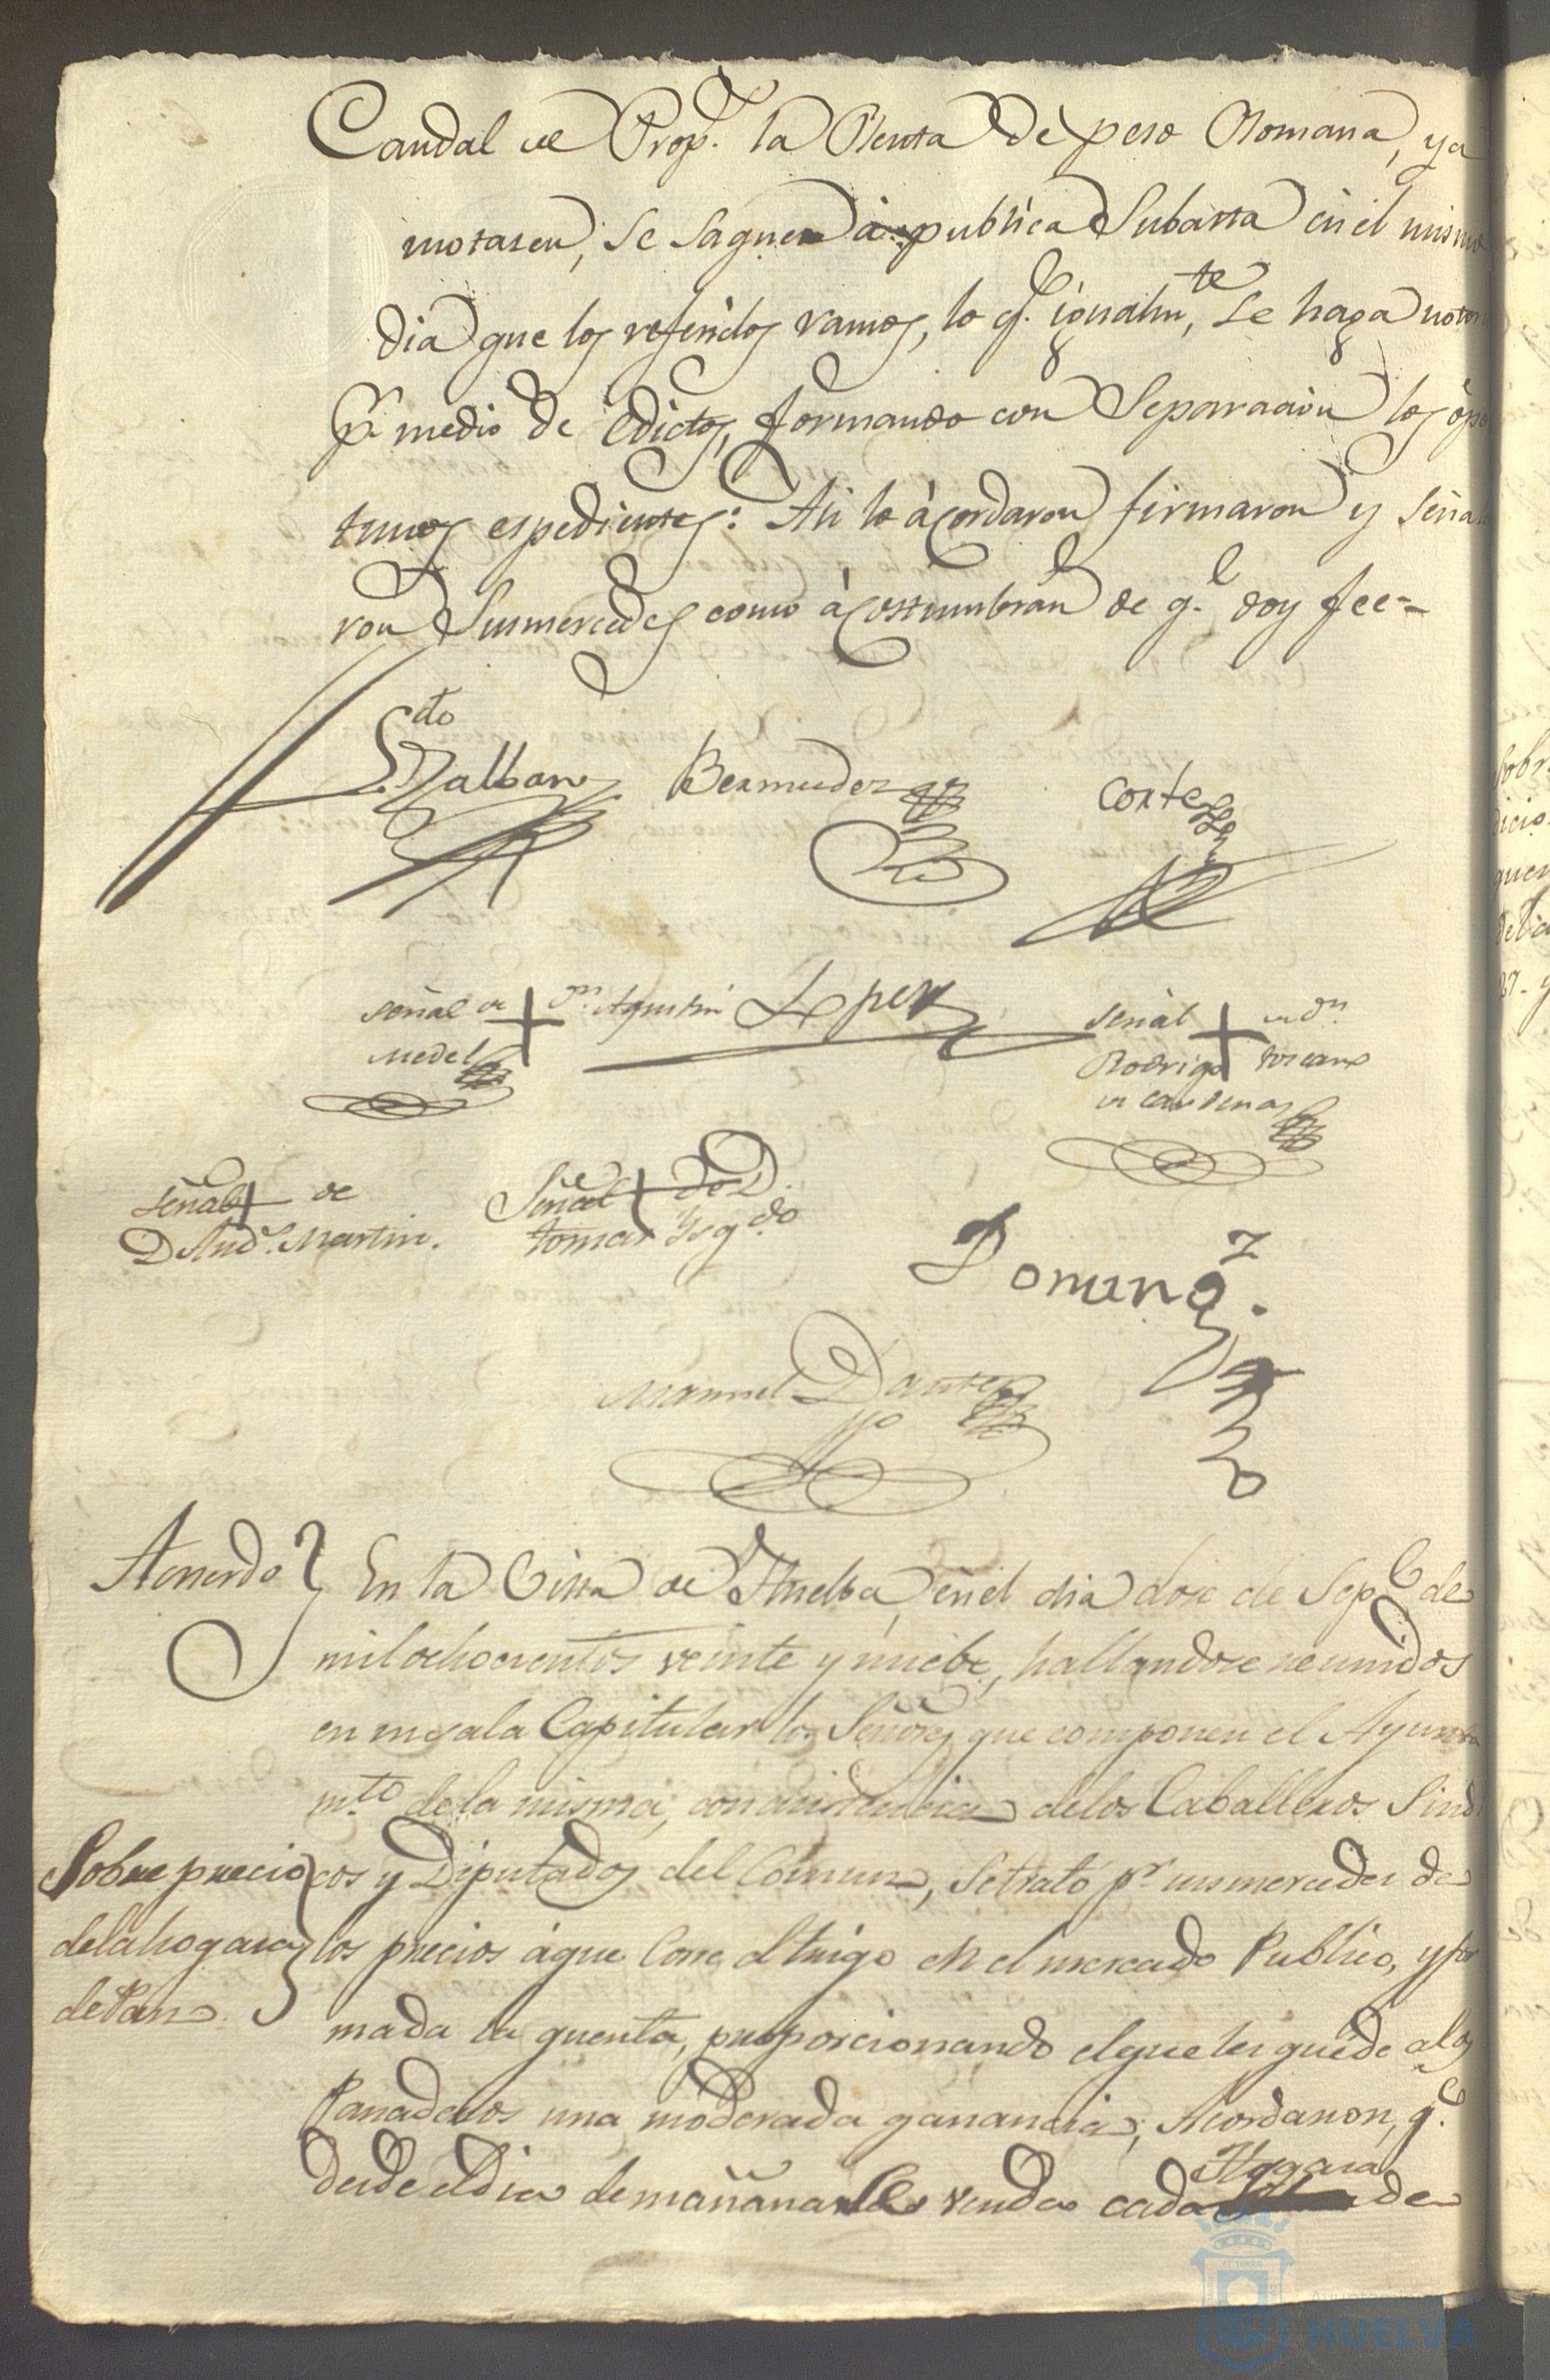 Caudal de Prop.s la Renta de peso Romana, y a
motasen, se saquen à publica Subasta en el mismo
dia que los referidos ramos, lo q.e igualm.te se haga notor
p.r medio de Edictos, formando con Separacion los opor
tunos espedientes: Asi lo acordaron firmaron y señala
ron Sus mercedes como àcostumbran de q.e doy fee=
Ldo
Bermudez
Cortes
señal de + D.n Agustin
Medel
Lopez
señal + de D.n
Rodrigo Toscano
de Cardenas
señal + de
D And.s Martin.
Señal + de D.
tomas Ysq.do
Doming.z
Manuel Dantes
Acuerdo
En la Villa de Huelba, en el dia doce de Sep.e de
mil ochocientos veinte y nuebe, hallandose reunidos
en su sala Capitular los Señores que componen el Ayunta
m.to de la misma, con asistencia de los Caballeros Sindi
Sobre precio
de la hogasa
de Pan
cos y Diputados del Comun, se trató p.r sus mercedes de
los precios àque Corre el trigo en el mercado Publico, y for
mada la quenta, proporcionando el que les quede a los
Panaderos una moderada ganancia; Acordaron, q.e
desde el dia de mañana se venda cada Hogasa de
HUELVA